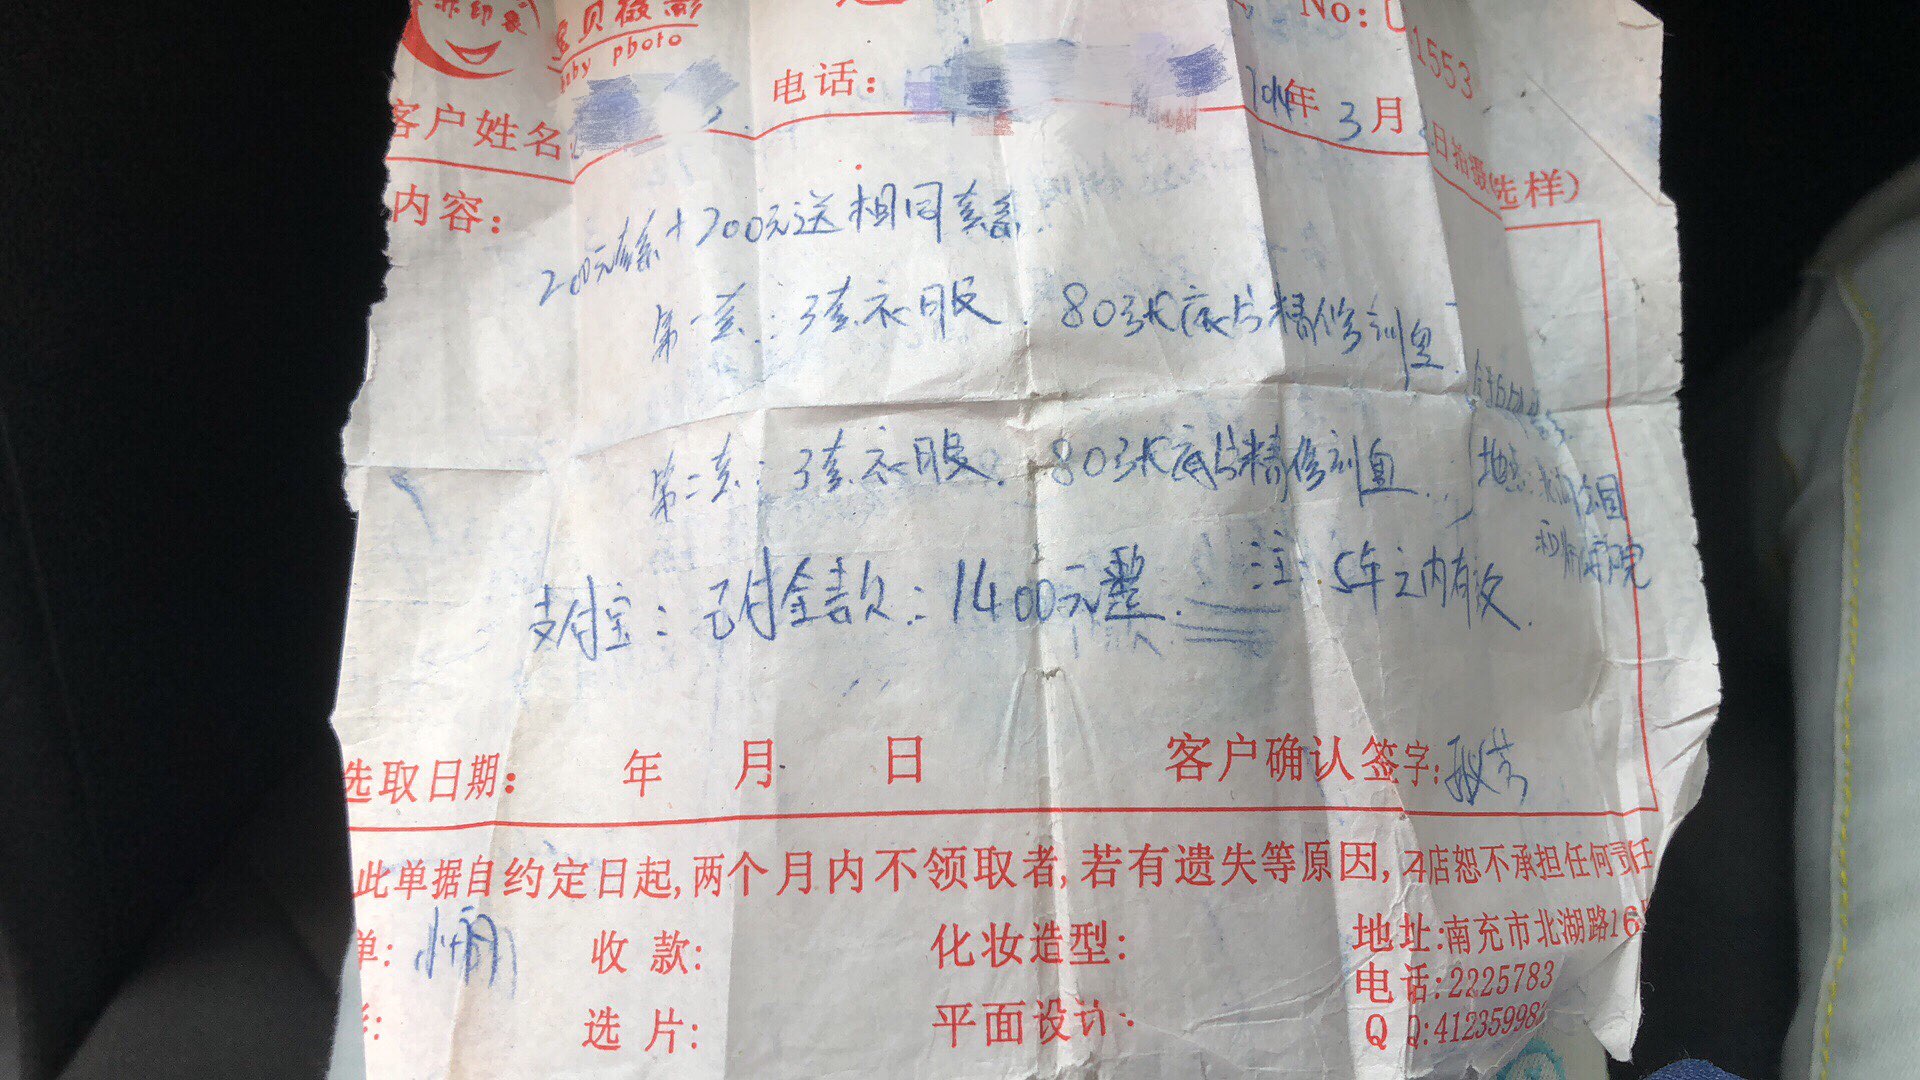 宝贝摄影
baby photo
No:
1553
客户姓名
电话:
年 3月
日拍摄(选样)
内容:
200元套系+200元送相同套系.
第一套: 3套衣服. 80张底片精修刻盘
第二套: 3套衣服. 80张底片精修刻盘.
地址:
支付宝: 已付全款: 1400元整. 注: 5年之内有效.
选取日期: 年 月 日 客户确认签字:
此单据自约定日起,两个月内不领取者,若有遗失等原因,本店恕不承担任何责任
单: 收 款: 化妆造型: 地址:南充市北湖路16
电话:2225783
选 片: 平面设计: Q Q:41235998